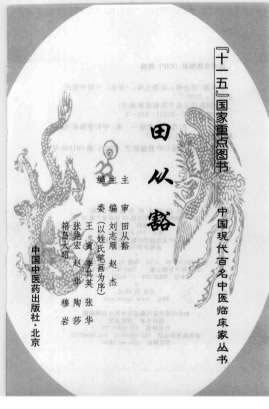 『十一五』国家重点图书
中国现代百名中医临床家丛书
田从豁
主 审 田从豁
主 编 刘志顺 赵 杰
编 委 (以姓氏笔画为序)
王 寅 李其英 张 华
张华宏 赵 华 陶 莎
穆 岩
中国中医药出版社·北京